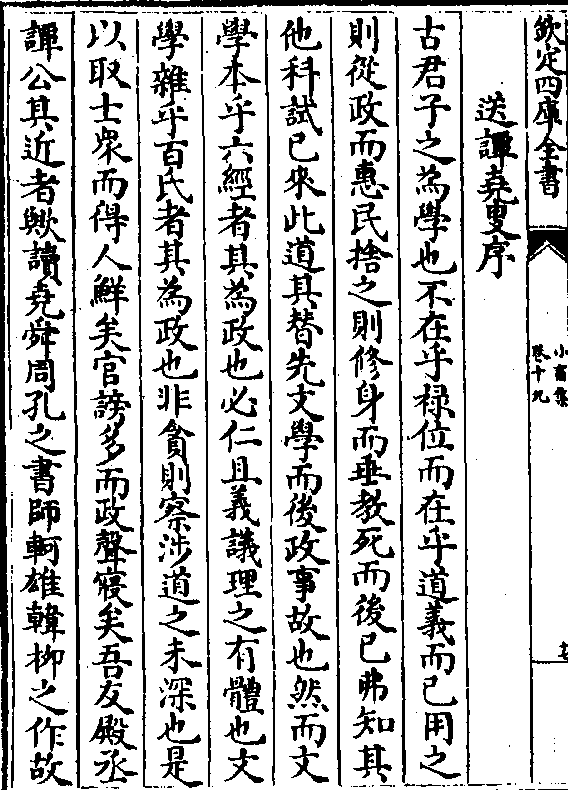 欽定四庫全書
小畜集
卷十九
送譚堯叟序
古君子之為學也不在乎祿位而在乎道義而已用之
則從政而惠民捨之則修身而垂教死而後已弗知其
他科試已來此道其替先文學而後政事故也然而文
學本乎六經者其為政也必仁且義議理之有體也文
學雜乎百氏者其為政也非貪則察涉道之未深也是
以取士衆而得人鮮矣官謗多而政聲寢矣吾友殿丞
譚公其近者歟讀堯舜周孔之書師軻雄韓柳之作故